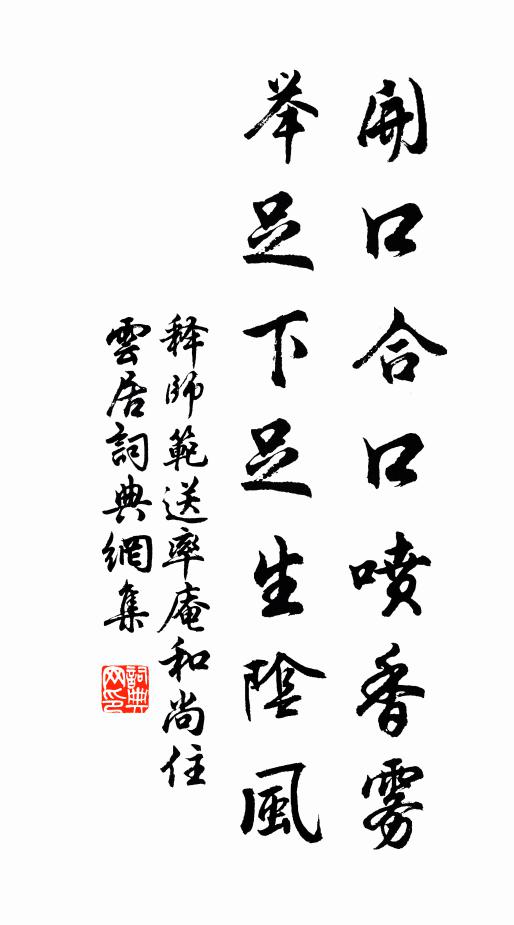 開口合口噴香雾
举足下足生陰風
释師範送率庵和尚住
雲居詞典網集
詞典网印